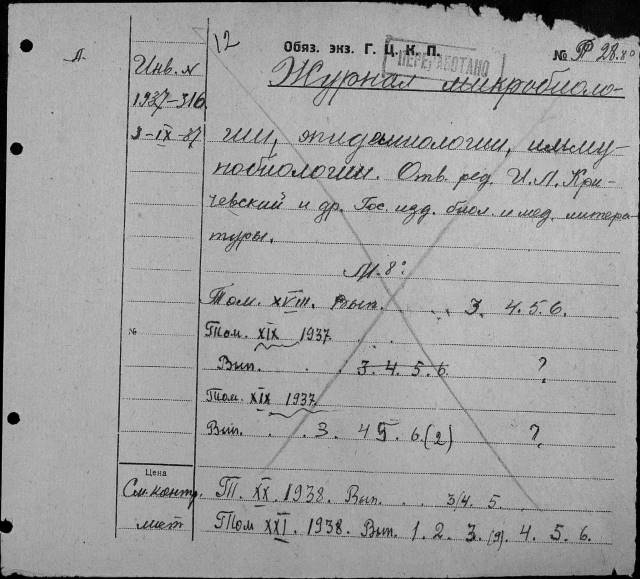 12
Обяз. экз. Г. Ц. К. П.
ПЕРЕРАБОТАНО
№ Р 28.80
Л.
Инв. N
1937-316
3-IX-37
Журнал микробиоло-
гии, эпидемиологии, имму-
нобиологии. Отв. ред. И.Л. Кри-
чевский и др. Гос. изд. биол. и мед. литера-
туры.
М. 8°
Том. XVIII. Вып. . . . 3. 4. 5. 6.
№
Том. XIX 1937. . .
Вып. . . 3. 4. 5. 6. ?
Том. XIX 1937
Вып. . . 3. 4 5. 6. (2) ?
Цена
См. контр.
лист
Т. XX. 1938. Вып. . . 3/4. 5.
Том XXI. 1938. Вып. 1. 2. 3. (9). 4. 5. 6.